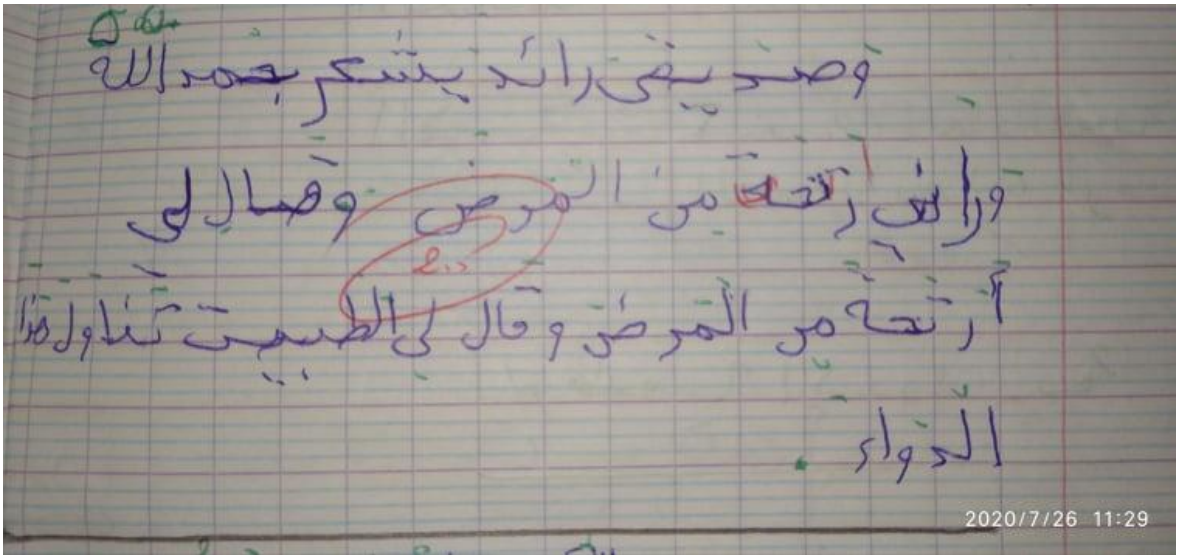 وصديقي رائد يشكر بحمد الله
وراني رتحة من المرض وقال لي
أرتحة من المرض وقال لي الطبيب تناول هذا
الدواء.
2020/7/26 11:29